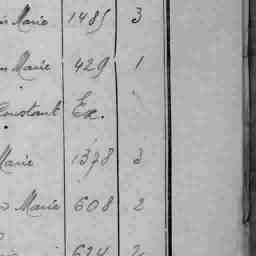 Marie 1485 3
Marie 429 1
Constant Ex.
Marie 1378 3
Marie 608 2
624 2